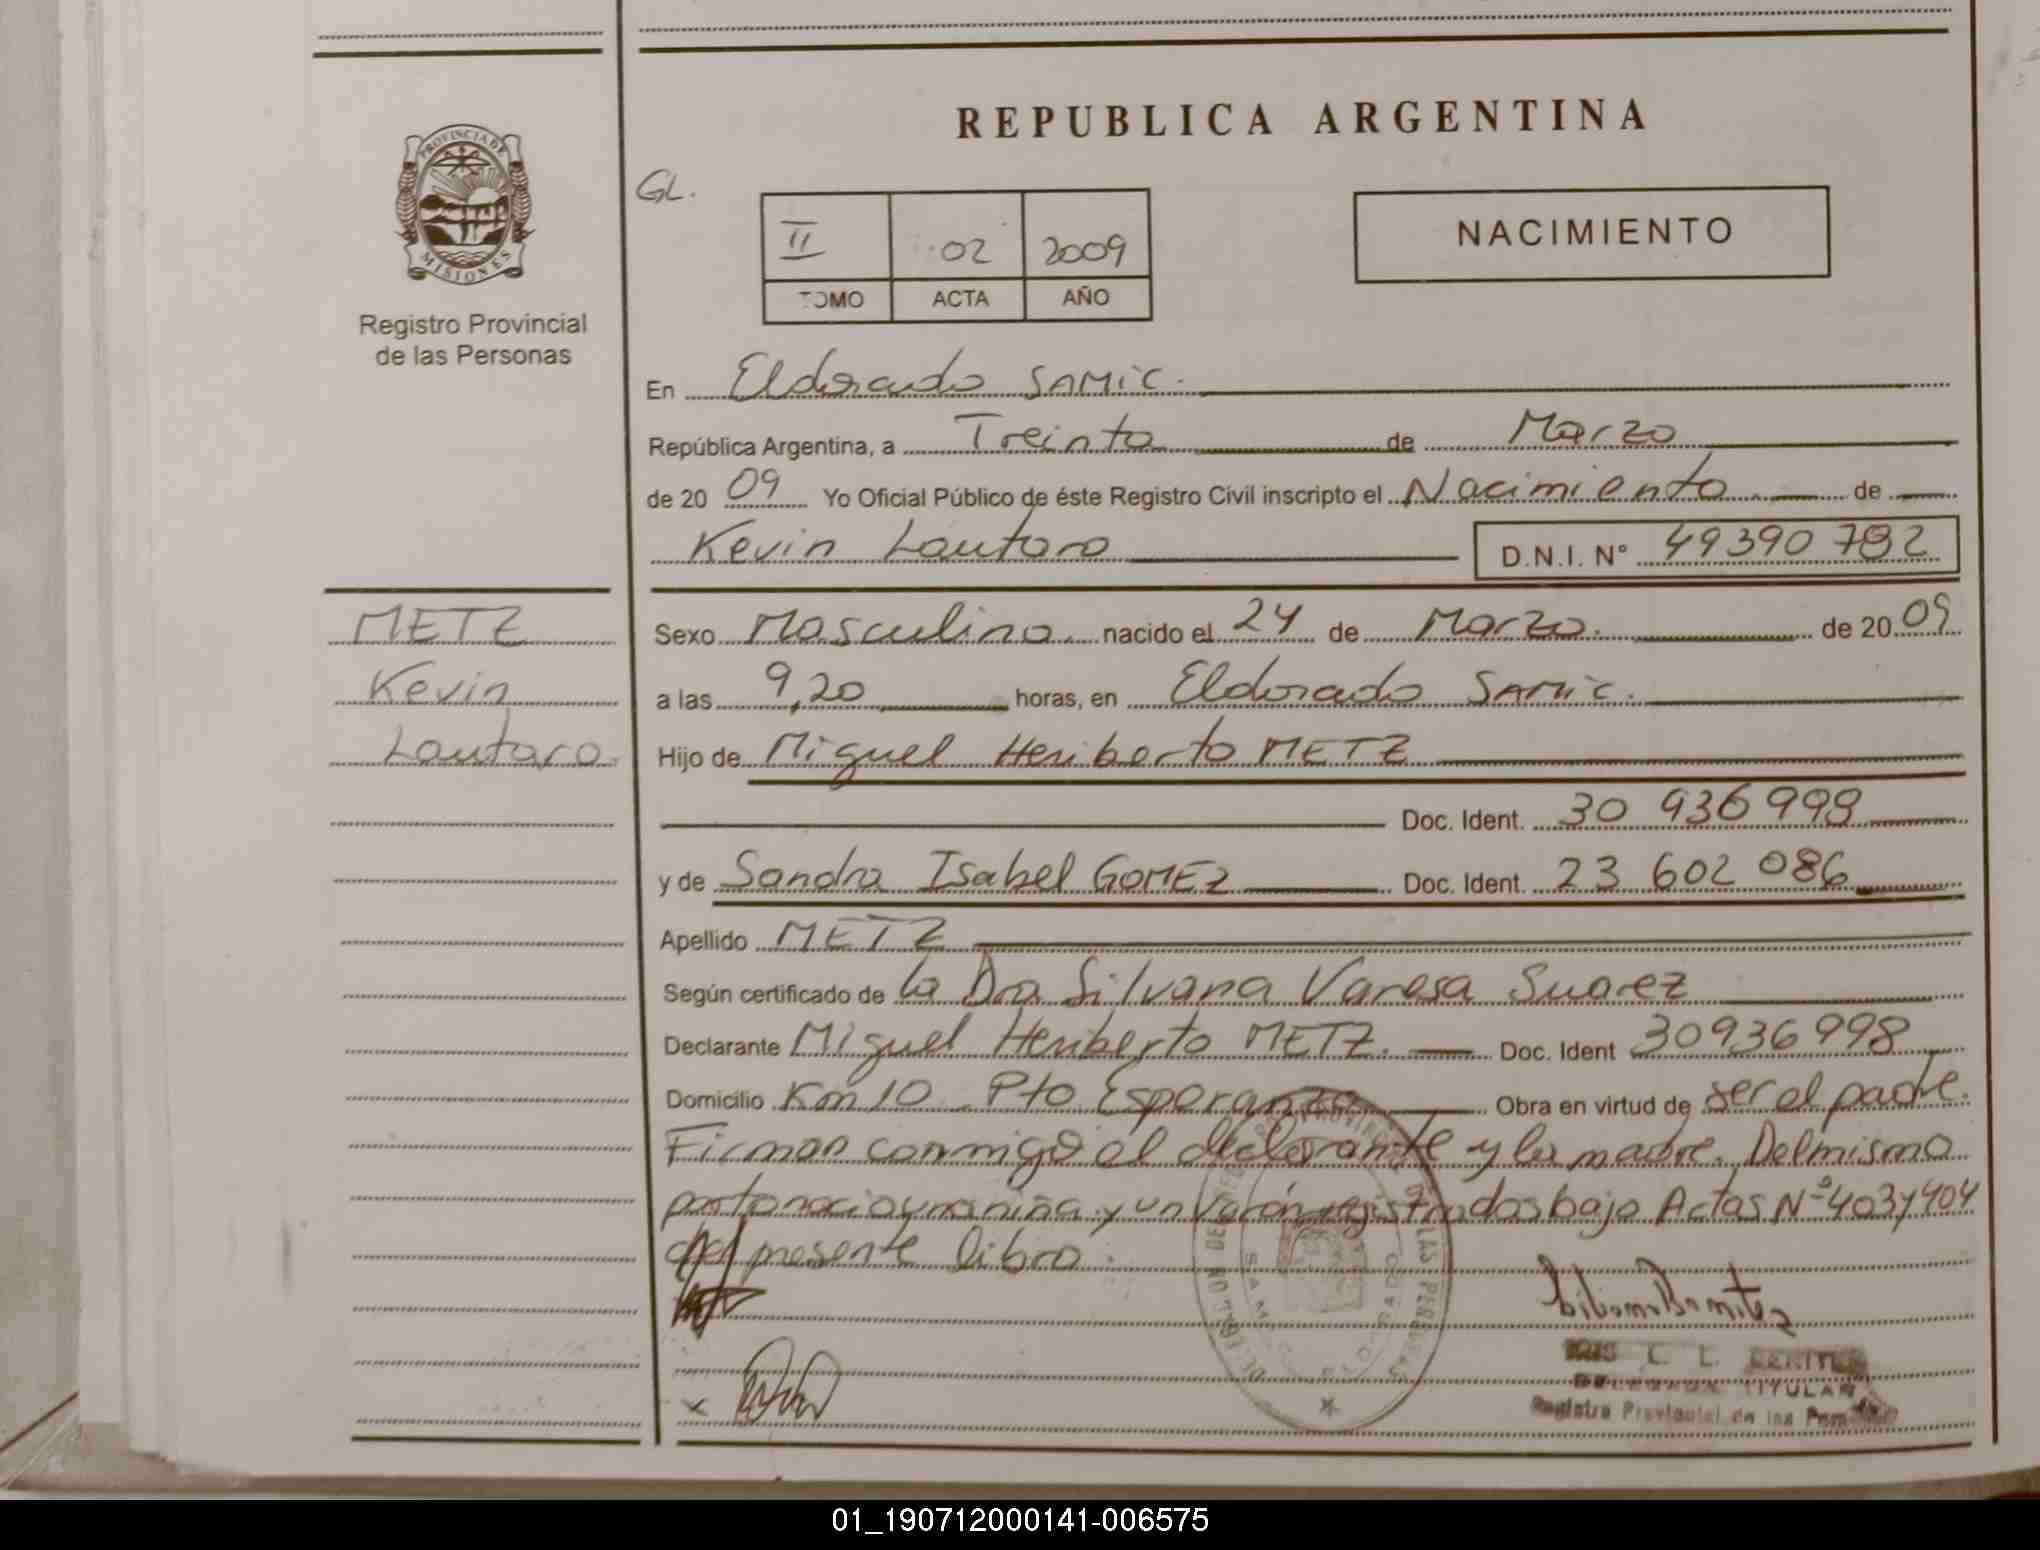 REPUBLICA ARGENTINA
PROVINCIA DE
MISIONES
Registro Provincial
de las Personas
GL.
II 02 2009
TOMO ACTA AÑO
NACIMIENTO
En Eldorado SAMIC.
República Argentina, a Treinta de Marzo
de 2009 Yo Oficial Público de éste Registro Civil inscripto el Nacimiento de
Kevin Lautaro D.N.I. N° 49390 782
METZ
Kevin
Lautaro.
Sexo Masculino nacido el 24 de Marzo. de 2009
a las 9,20 horas, en Eldorado SAMIC.
Hijo de Miguel Heriberto METZ
Doc. Ident. 30 936 998
y de Sandra Isabel GOMEZ Doc. Ident. 23 602 086
Apellido METZ
Según certificado de la Dra Silvana Varesa Suarez
Declarante Miguel Heriberto METZ. Doc. Ident 30936998
Domicilio Km 10 Pto Esperanza Obra en virtud de ser el padre.
Firman conmigo el declarante y la madre. Del mismo
parto nacio una niña y un varón registrados bajo Actas Nº 403 y 404
del presente libro.
L. L. BENITEZ
DELEGADA TITULAR
Registro Provincial de las Personas
01_190712000141-006575